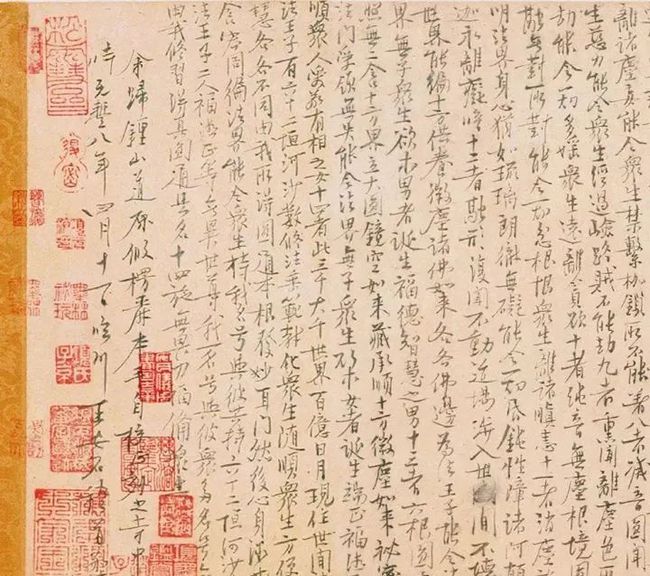 離諸塵妄能令衆生禁繫枷鎖所不能著八者滅音圓聞
生慈力能令衆生經過嶮路賊不能劫九者熏聞離塵色所
劫能令一切多婬衆生遠離貪欲十者純音無塵根境圓
融無對所對能令一切忿恨衆生離諸瞋恚十一者消塵旋
明法界身心猶如琉璃朗徹無礙能令一切昏鈍性障諸阿顛
迦永離癡暗十二者融形復聞不動道場涉入世間不壞
世界能徧十方供養微塵諸佛如來各各佛邊為法王子能令
界無子衆生欲求男者誕生福德智慧之男十三者六根圓
照無二含十方界立大圓鏡空如來藏承順十方微塵如來祕密
法門受領無失能令法界無子衆生欲求女者誕生端正福德
順衆人愛敬有相之女十四者此三千大千世界百億日月現住世間
法王子有六十二恒河沙數修法垂範教化衆生隨順衆生方便
慧各各不同由我所得圓通本根發妙耳門然後身心微妙
含容周徧法界能令衆生持我名號與彼共持六十二恒河沙
法王子二人福德正等無異世尊我一名號與彼衆多名號
由我修習得真圓通是名十四施無畏力福備衆生
余歸鍾山道原假楞嚴本手自校正刻之寺中
時元豐八年四月十一日臨川王安石稽首敬